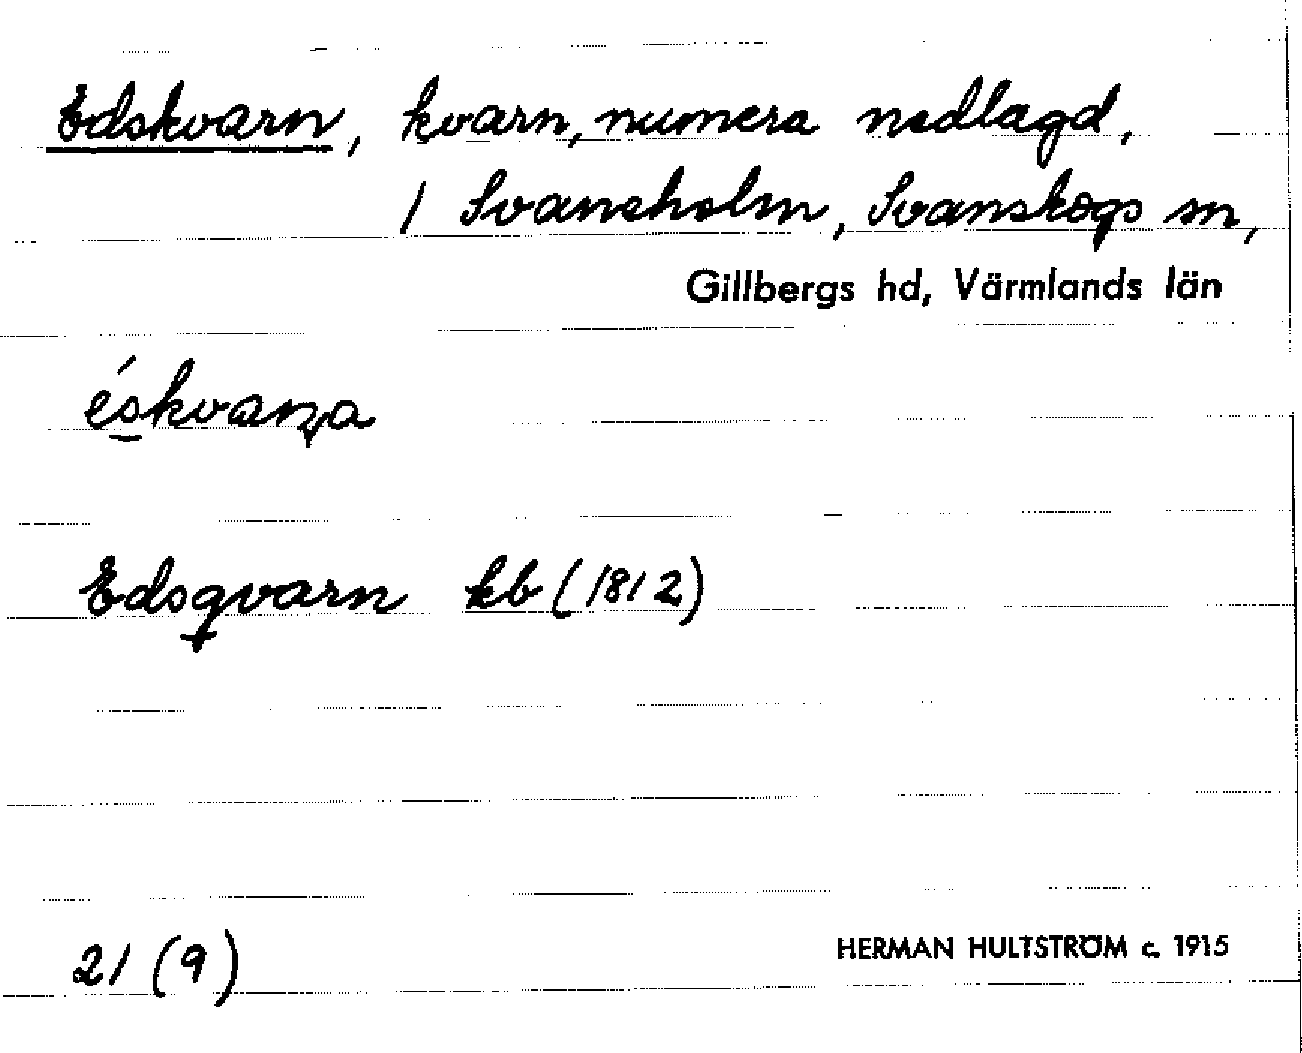 Edskvarn, kvarn, numera nedlagd,
/ Svaneholm, Svanskogs sn,
Gillbergs hd, Värmlands län
éskvaṇa
Edsqvarn kb (1812)
21 (9)
HERMAN HULTSTRÖM c. 1915